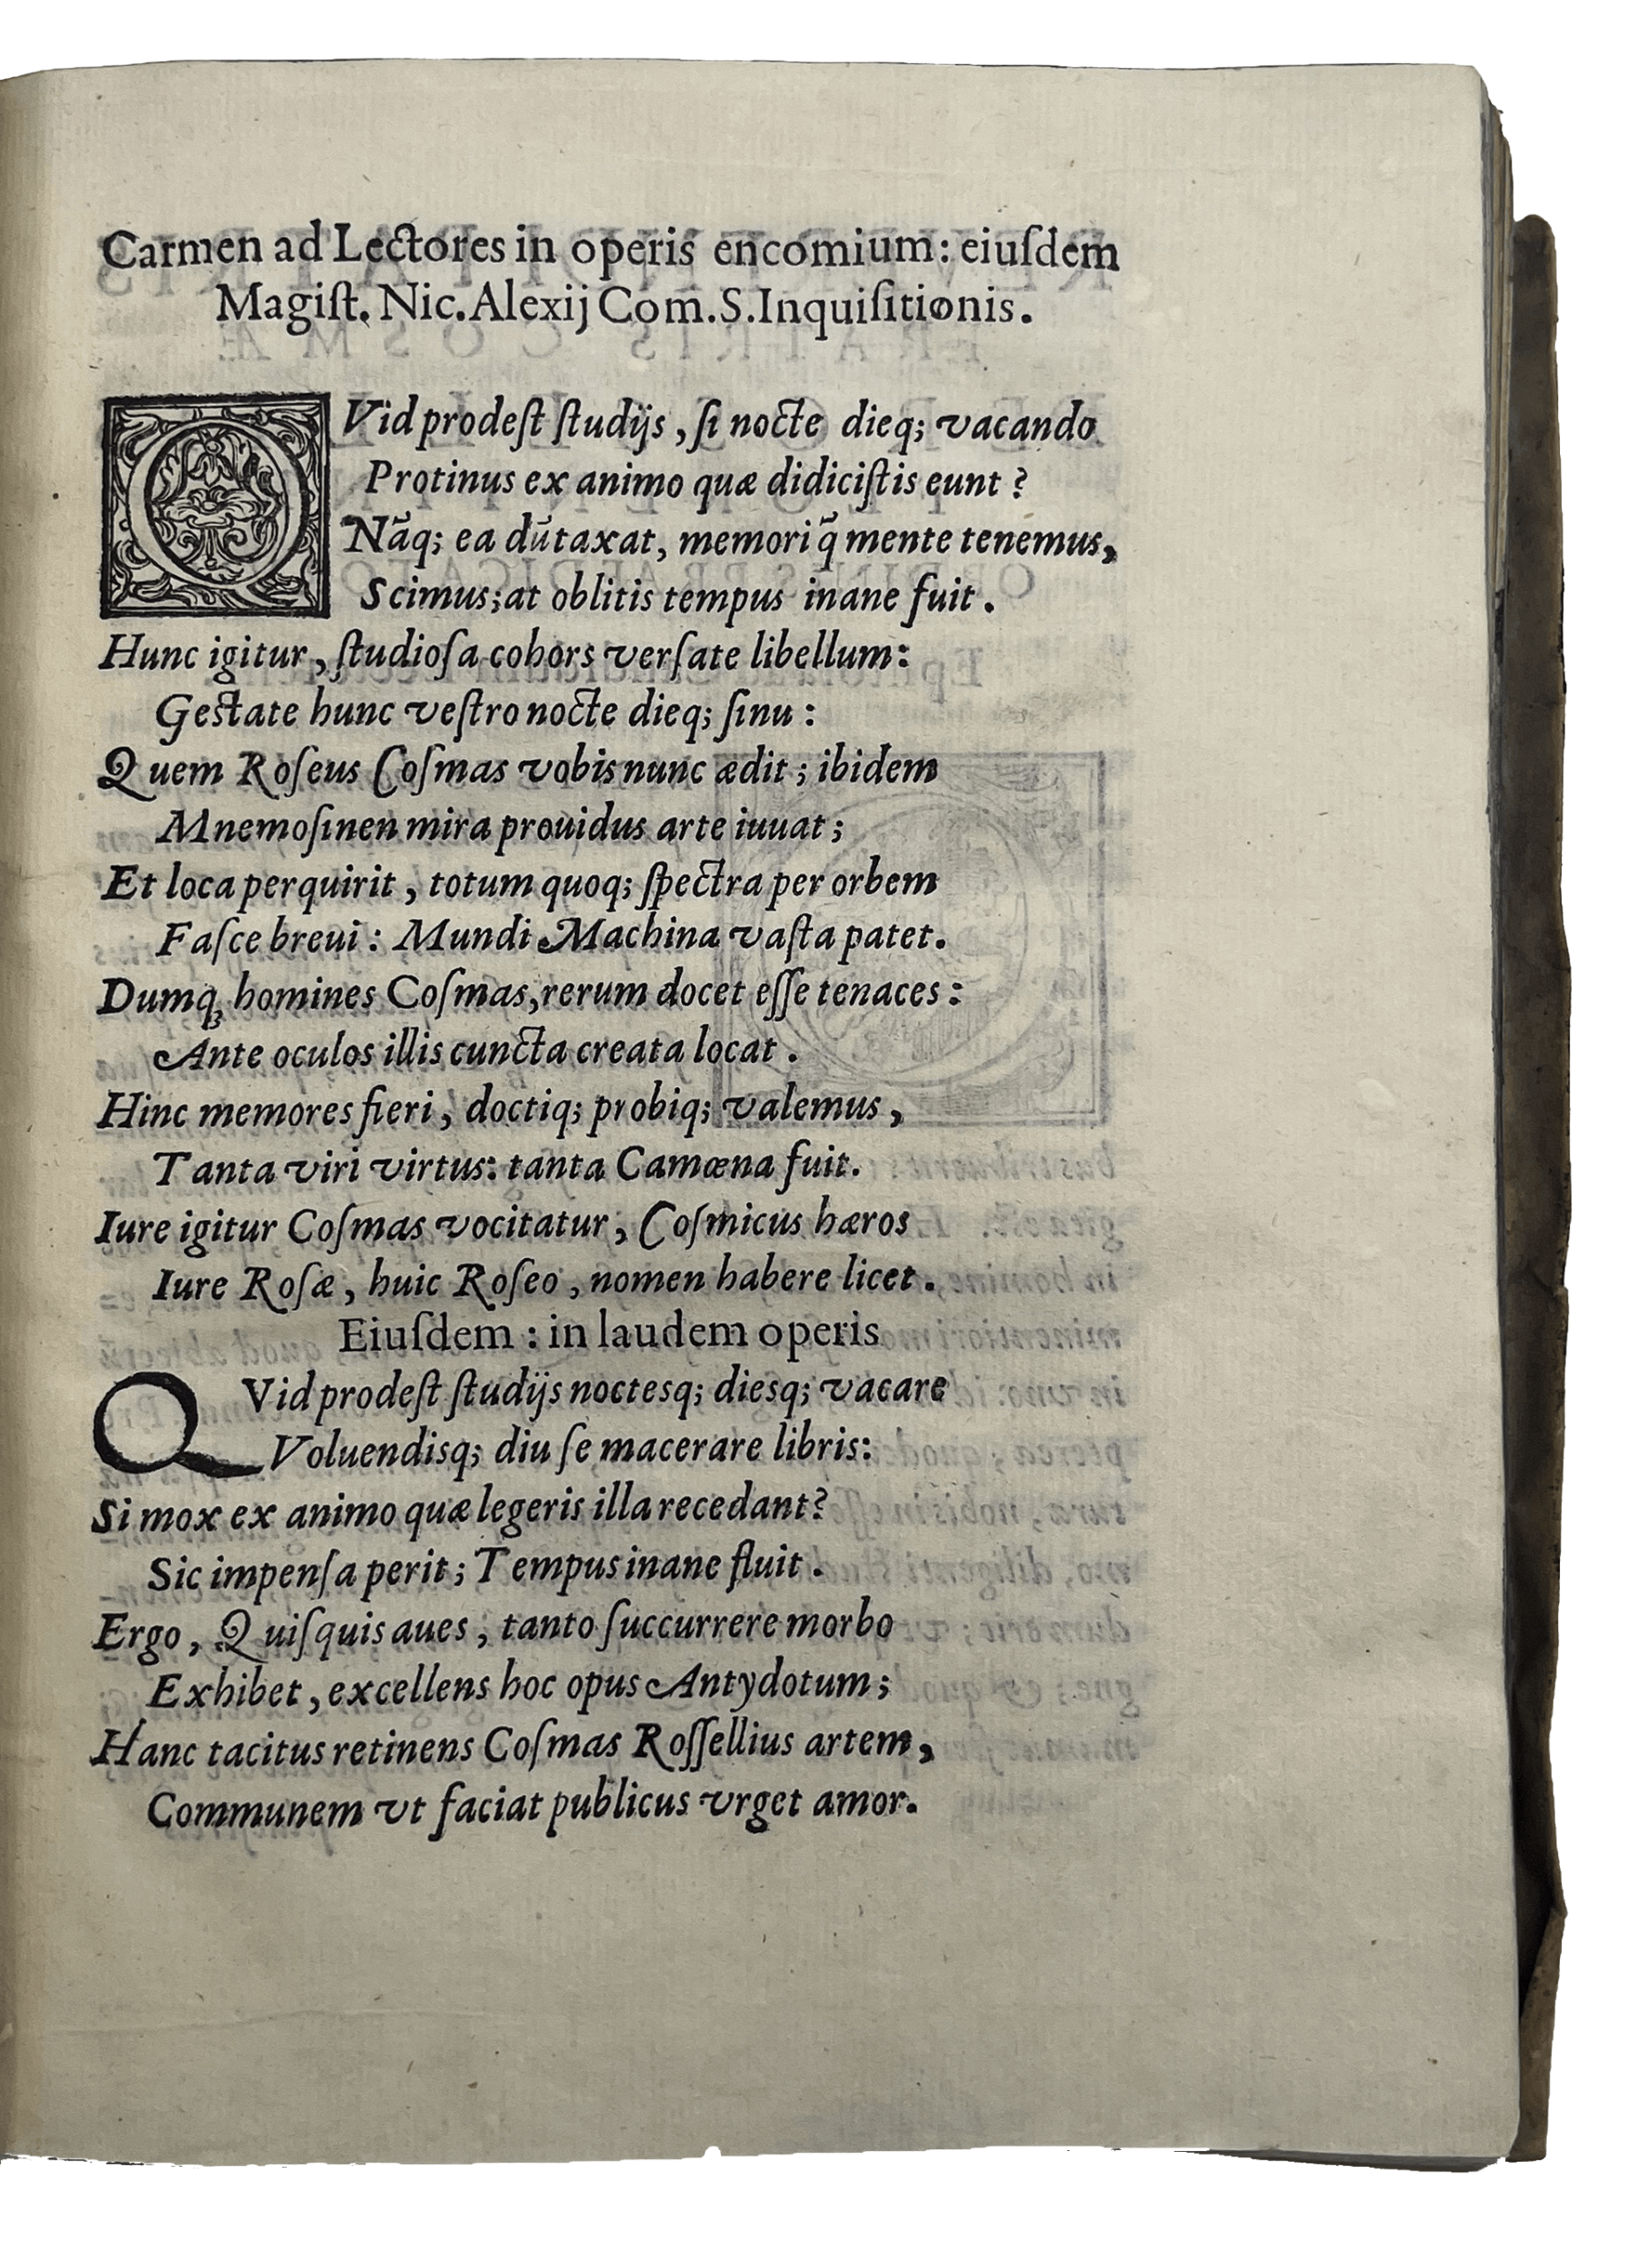 Carmen ad Lectores in operis encomium: eiuſdem
Magiſt. Nic. Alexij Com. S. Inquiſitionis.
QVid prodeſt ſtudijs, ſi nocte dieq; vacando
Protinus ex animo quæ didiciſtis eunt?
Nãq; ea dũtaxat, memoriq̃ mente tenemus,
Scimus; at oblitis tempus inane fuit.
Hunc igitur, ſtudioſa cohors verſate libellum:
Geſtate hunc veſtro nocte dieq; ſinu:
Quem Roſeus Coſmas vobis nunc ædit; ibidem
Mnemoſinen mira prouidus arte iuuat;
Et loca perquirit, totum quoq; ſpectra per orbem
Faſce breui: Mundi Machina vaſta patet.
Dumqꝫ homines Coſmas, rerum docet eſſe tenaces:
Ante oculos illis cuncta creata locat.
Hinc memores fieri, doctiq; probiq; valemus,
Tanta viri virtus: tanta Camœna fuit.
Iure igitur Coſmas vocitatur, Coſmicus hæros
Iure Roſæ, huic Roſeo, nomen habere licet.
Eiuſdem: in laudem operis
QVid prodeſt ſtudijs noctesq; diesq; vacare
Voluendisq; diu ſe macerare libris:
Si mox ex animo quæ legeris illa recedant?
Sic impenſa perit; Tempus inane fluit.
Ergo, Quiſquis aues, tanto ſuccurrere morbo
Exhibet, excellens hoc opus Antydotum;
Hanc tacitus retinens Coſmas Roſſellius artem,
Communem vt faciat publicus vrget amor.